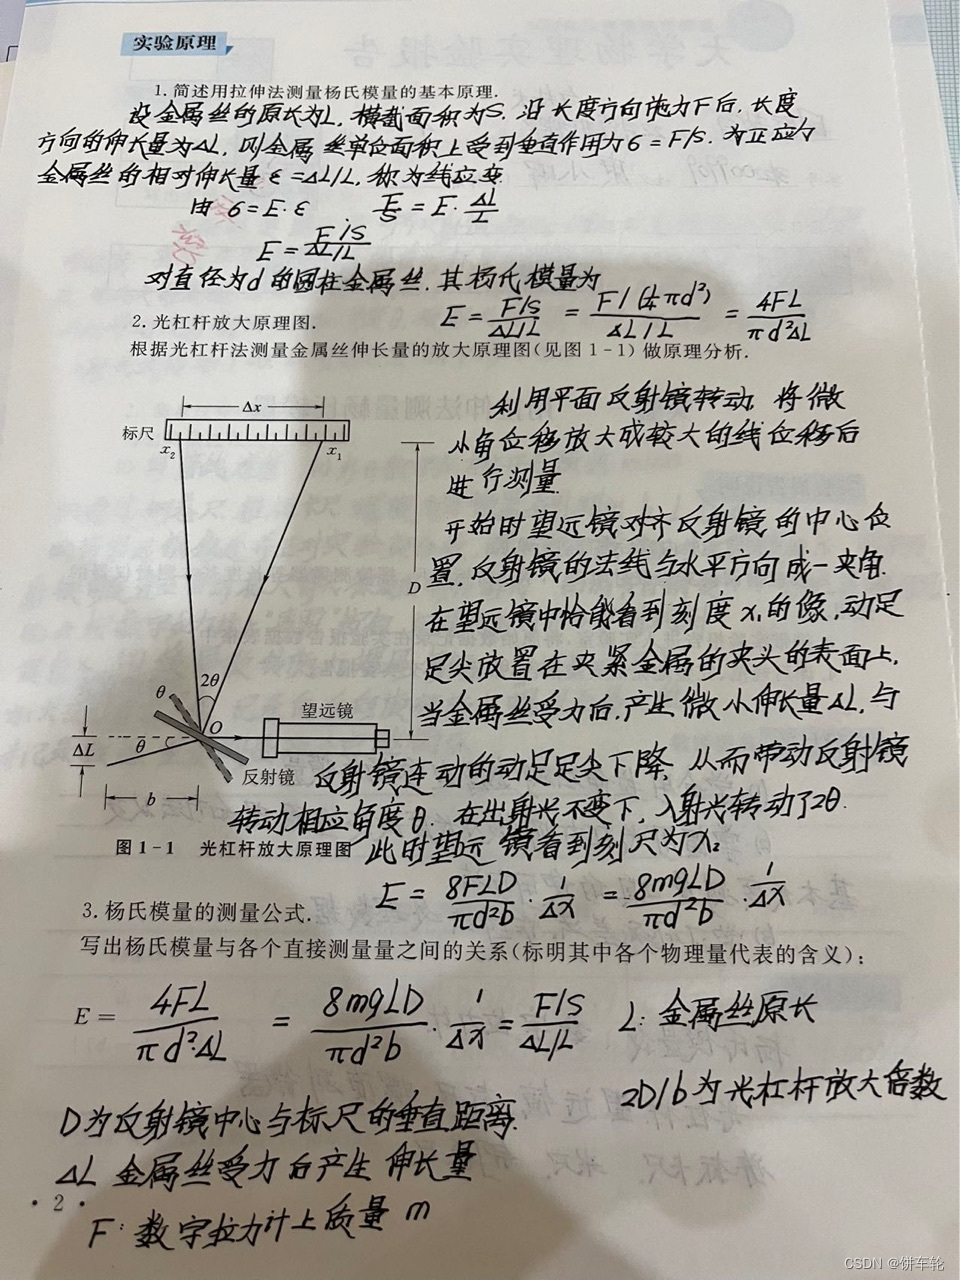 实验原理
1.简述用拉伸法测量杨氏模量的基本原理.
设金属丝的原长为L,横截面积为S,沿长度方向施力F后,长度
方向的伸长量为ΔL,则金属丝单位面积上受到垂直作用力σ=F/S.为正应力
金属丝的相对伸长量ε=ΔL/L,称为线应变
由σ=E·ε F/S=E·ΔL/L
E=(F/S)/(ΔL/L)
对直径为d的圆柱金属丝.其杨氏模量为
E=(F/S)/(ΔL/L)=(F/(¼πd²))/(ΔL/L)=4FL/(πd²ΔL)
2.光杠杆放大原理图.
根据光杠杆法测量金属丝伸长量的放大原理图(见图1-1)做原理分析.
Δx
标尺
x₂ x₁
D
θ 2θ
O
望远镜
ΔL θ
反射镜
b
图1-1 光杠杆放大原理图
利用平面反射镜转动,将微
小角位移放大成较大的线位移后
进行测量.
开始时望远镜对齐反射镜的中心位
置,反射镜的法线与水平方向成一夹角.
在望远镜中恰能看到刻度x₁的像,动足
足尖放置在夹紧金属的夹头的表面上,
当金属丝受力后,产生微小伸长量ΔL,与
反射镜连动的动足足尖下降,从而带动反射镜
转动相应角度θ.在出射光不变下,入射光转动了2θ.
此时望远镜看到刻尺为x₂
E=8FLD/(πd²b)·1/Δx=8mgLD/(πd²b)·1/Δx
3.杨氏模量的测量公式.
写出杨氏模量与各个直接测量量之间的关系(标明其中各个物理量代表的含义):
E=4FL/(πd²·ΔL)=8mgLD/(πd²b)·1/Δx=(F/S)/(ΔL/L) L:金属丝原长
2D/b为光杠杆放大倍数
D为反射镜中心与标尺的垂直距离.
ΔL 金属丝受力后产生伸长量
F:数字拉力计上质量m
·2·
CSDN @饼车轮